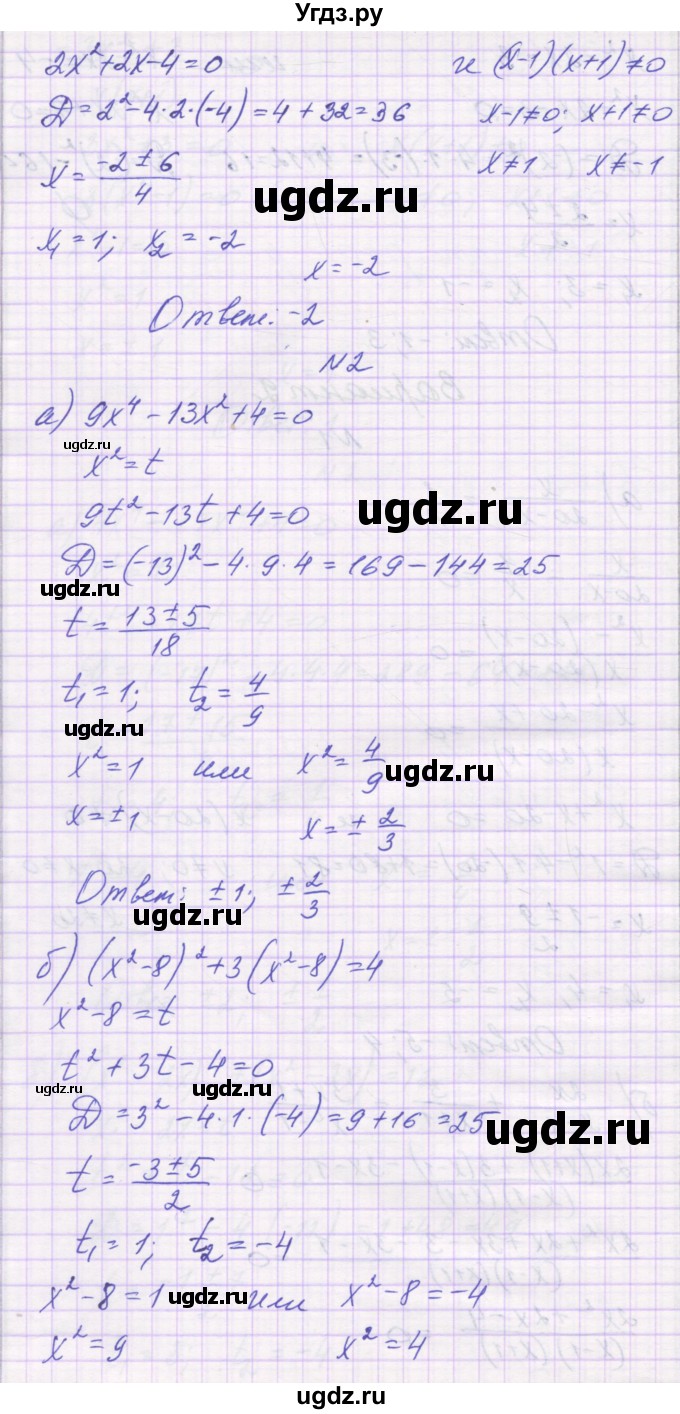 Угдз.ру
2x²+2x-4=0 и (x-1)(x+1)≠0
Д=2²-4·2·(-4)=4+32=36 x-1≠0; x+1≠0
x=(-2±6)/4 x≠1 x≠-1
ugdz.ru
x₁=1; x₂=-2
x=-2
Ответ: -2
N2
а) 9x⁴-13x²+4=0
ugdz.ru
x²=t
ugdz.ru
9t²-13t+4=0
Д=(-13)²-4·9·4=169-144=25
ugdz.ru
t=(13±5)/18
t₁=1; t₂=4/9
ugdz.ru
x²=1 или x²=4/9
ugdz.ru
x=±1 x=±2/3
Ответ: ±1; ±2/3
ugdz.ru
б) (x²-8)²+3(x²-8)=4
x²-8=t
t²+3t-4=0
ugdz.ru ugdz.ru
Д=3²-4·1·(-4)=9+16=25
ugdz.ru
t=(-3±5)/2
t₁=1; t₂=-4
x²-8=1 или x²-8=-4
ugdz.ru
x²=9 x²=4
ugdz.ru